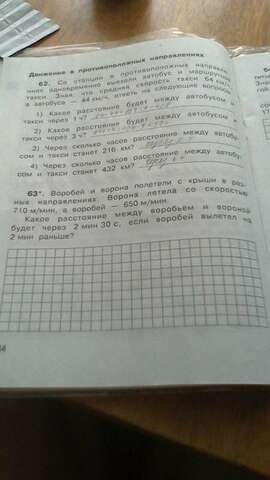 Движение в противоположных направлениях
62. Со станции в противоположных направле-
ниях одновременно выехали автобус и маршрутное
такси. Зная, что средняя скорость такси 64 км/ч,
а автобуса — 44 км/ч, ответь на следующие вопросы.
1) Какое расстояние будет между автобусом и
такси через 1 ч?
2) Какое расстояние будет между автобусом и
такси через 3 ч?
3) Через сколько часов расстояние между автобу-
сом и такси станет 216 км?
4) Через сколько часов расстояние между автобу-
сом и такси станет 432 км?
63*. Воробей и ворона полетели с крыши в раз-
ных направлениях. Ворона летела со скоростью
710 м/мин, а воробей — 650 м/мин.
Какое расстояние между воробьём и вороной
будет через 2 мин 30 с, если воробей вылетел на
2 мин раньше?